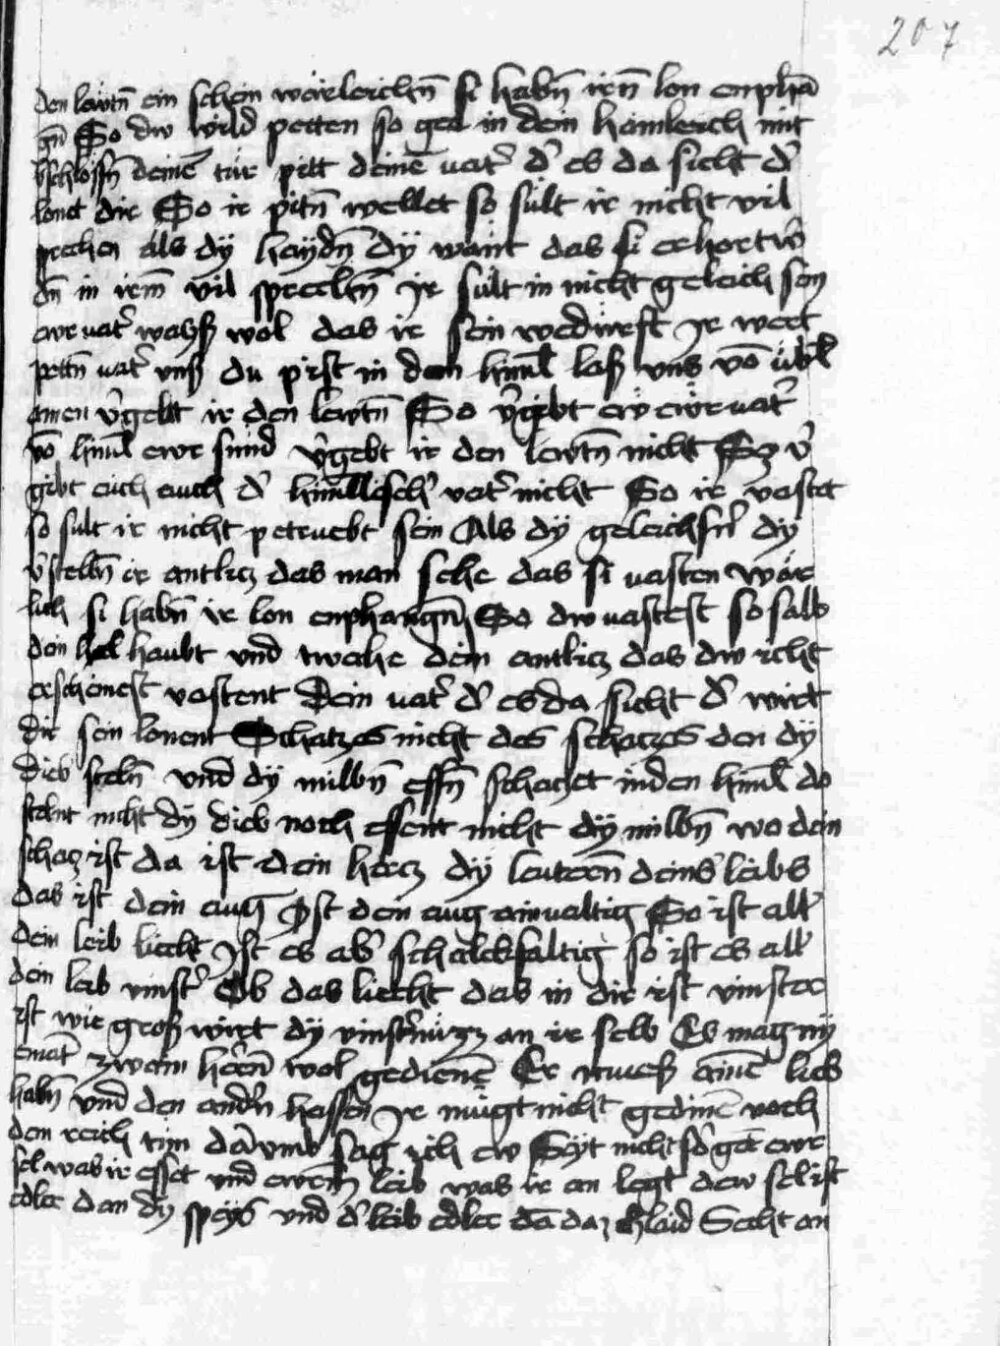 207
den lewtn̄ ein schein wärleichn̄ si habn̄ irn̄ lon emphā
gn̄ So dw wild petten so gee in dein kämlerch mit
bschlossn̄ deinē tür pitt deinē vat̉ d̉ es da sicht d̉
lonet dir So ir pitn̄ wellet so sült ir nicht vil
sprechen als dÿ haÿdn̄ dÿ wänt das si erhort w̉
dn̄ in irm̄ vil sprechn̄ Ir sült in nicht geleich sein
ewr vat̉ wayß wol das ir sein wedürfft Ir wert
pettn̄ vat̉ vnß̉ du pist in dem himl̄ laß vns vō übl̄
amen v̉gebt ir den lewtn̄ So v̉gibt ew ewr vat̉
vō himl̄ ewr sünd v̉gebt ir den lewtn̄ nicht So v̉
gibt euch auch d̉ himllisch̉ vat̉ nicht So ir vastet
so sult ir nicht petruebt sein Als dÿ geleichsn̉ dÿ
v̉stelln̄ ir antlicz das man sehe das si vasten wär
lich si habn̄ ir lon enphangn̄ So dw vastest so salb
dein haubt vnd twahe dein antlicz das dw icht
erscheinest vastent Dein vat̉ d̉ es da sicht d̉ wirt
dir sein lonent Schatzes nicht des schaczes den dÿ
dieb steln̄ vnd dÿ milbn̄ essn̄ schaczet in den himl̄ do
stelnt nicht dÿ dieb noch essent nicht dÿ milbn̄ wo dein
schacz ist da ist dein hercz dÿ lucern̄ deins leibs
das ist dein aug Ist dein aug ainualtig So ist all̉
dein leib liecht Ist es ab̉ schalckfaltig so ist es all̉
dein leib vinst̉ Ob das liecht das in dir ist vinster
ist wie groß wirt dÿ vinst̉nüzz an ir selb Es mag nÿ
emāt zwain hērn̄ wol gedienē Er mues ainē lieb
habn̄ vnd den andn̉ hassen Ir mügt nicht gedinē noch
dem reich tüm dārvmb sag ich ew Seyt nicht sorgē ewr
sel was ir esset vnd ewrm̄ leib was ir an legt dew sel ist
edler dan dÿ speys vnd d̉ leib edler dā daz chlaid Secht an